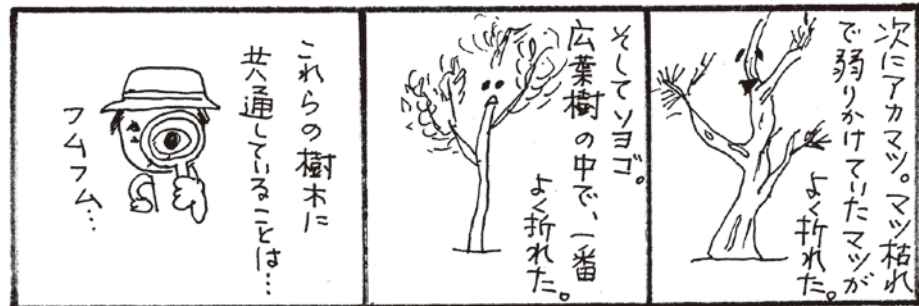 次にアカマツ。マツ枯れ
で弱りかけていたマツが
よく折れた。
そしてソヨゴ。
広葉樹の中で、一番
よく折れた。
これらの樹木に
共通していることは…
フムフム…